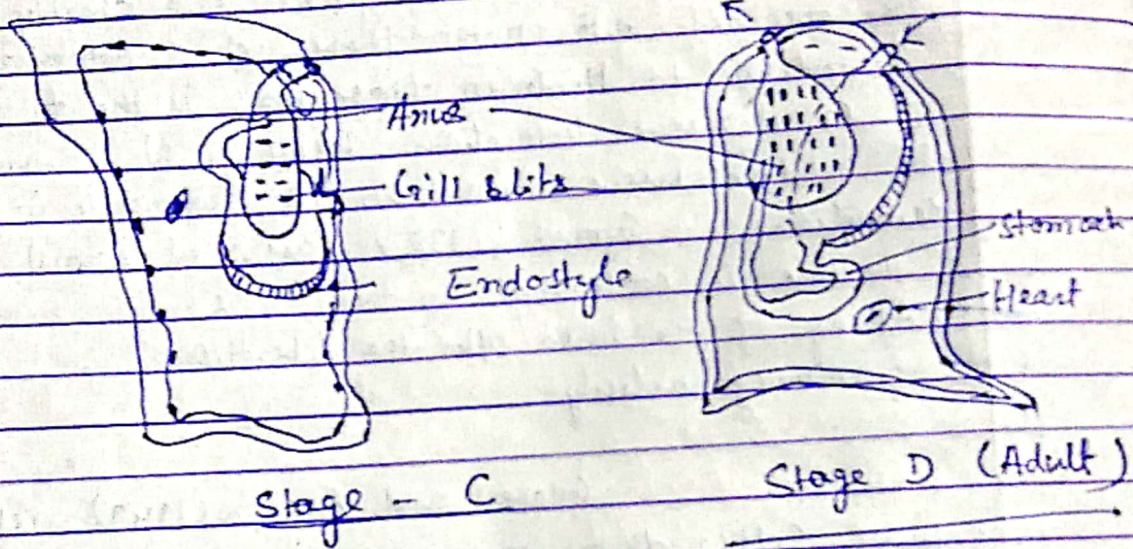 Anus
Gill slits
Endostyle
Stomach
Heart
Stage - C
Stage D (Adult)